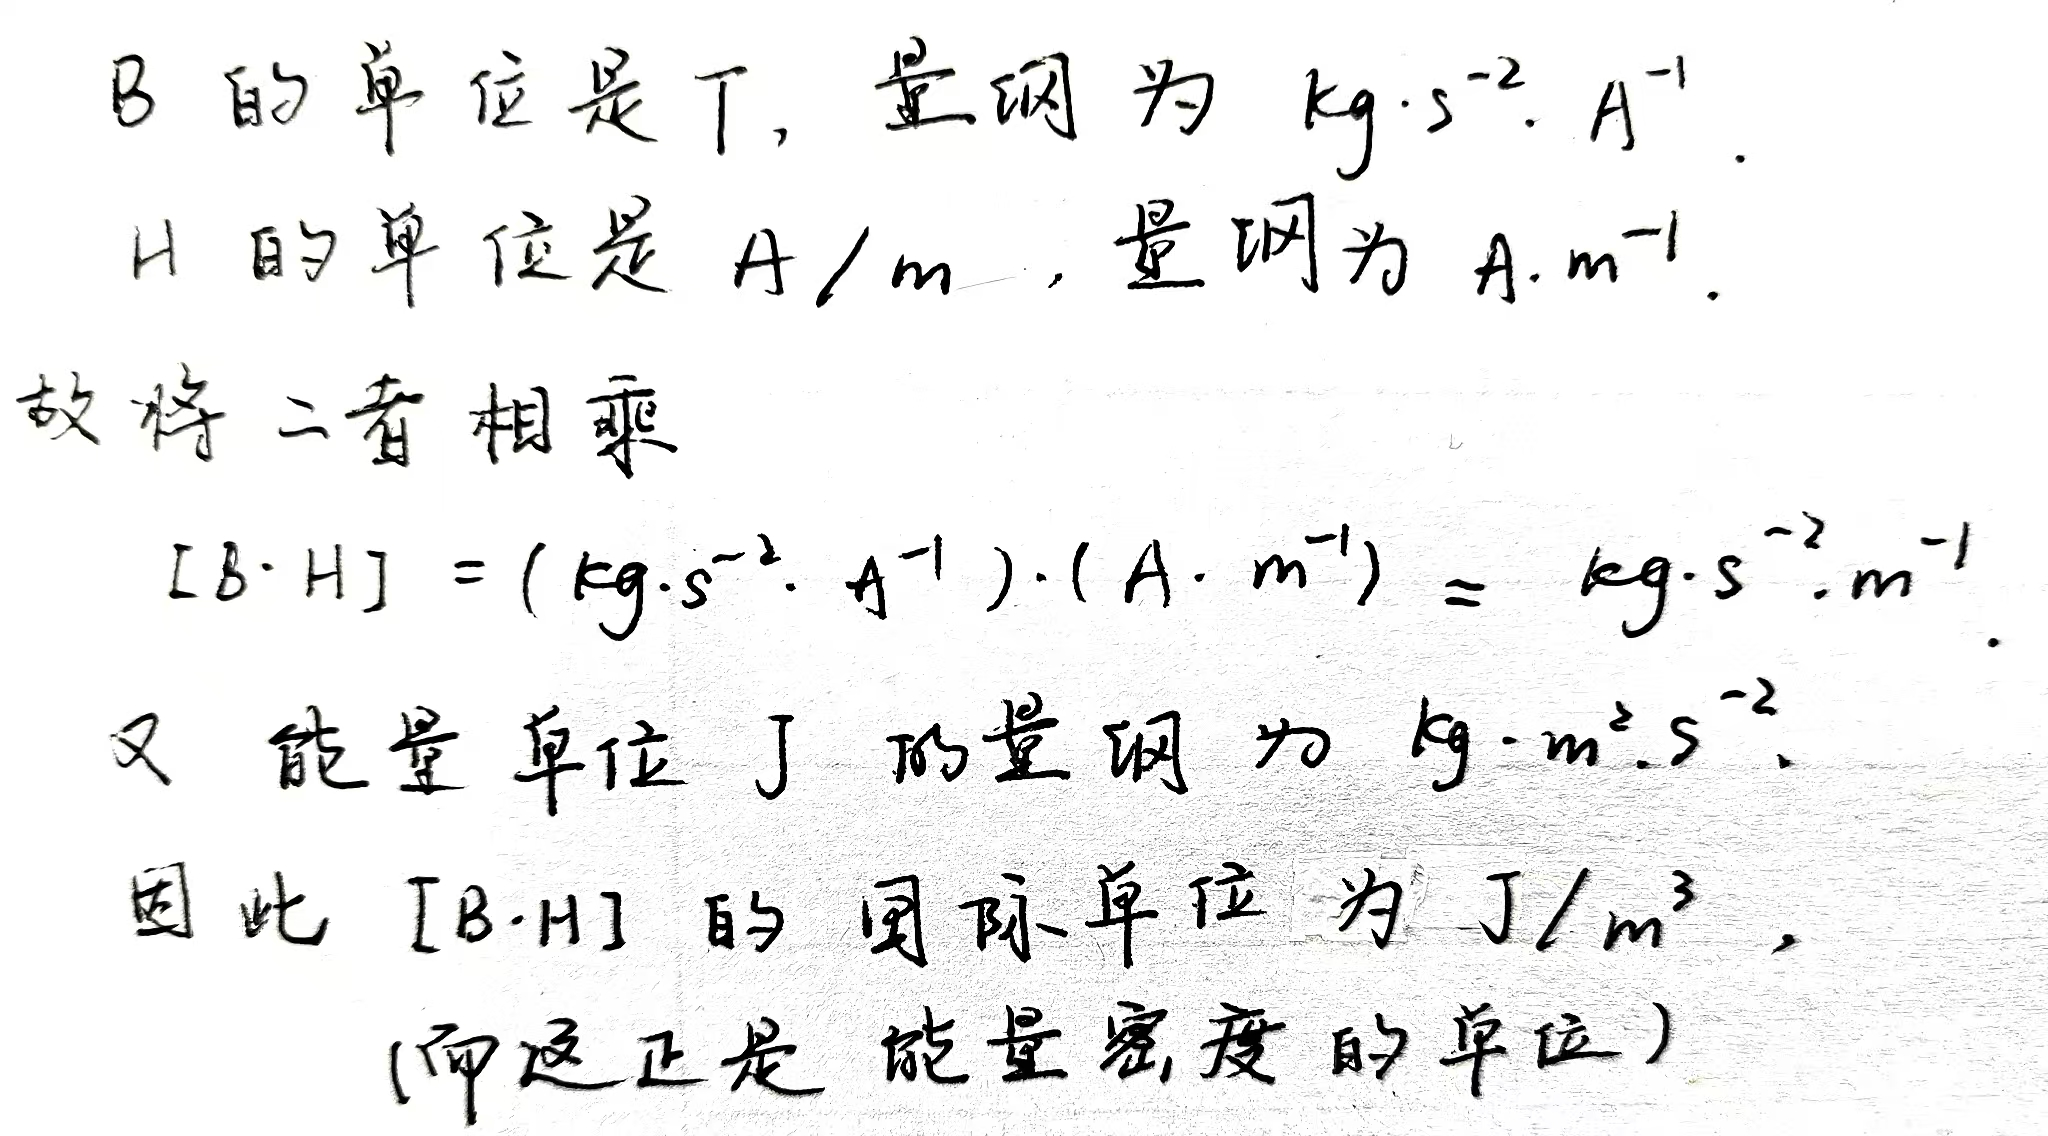 B 的单位是T, 量纲为 kg·s⁻²·A⁻¹.
H 的单位是 A/m, 量纲为 A·m⁻¹.
故将二者相乘
[B·H] = (kg·s⁻²·A⁻¹)·(A·m⁻¹) = kg·s⁻²·m⁻¹.
又 能量单位 J 的量纲为 kg·m²·s⁻².
因此 [B·H] 的国际单位为 J/m³,
(而这正是能量密度的单位)